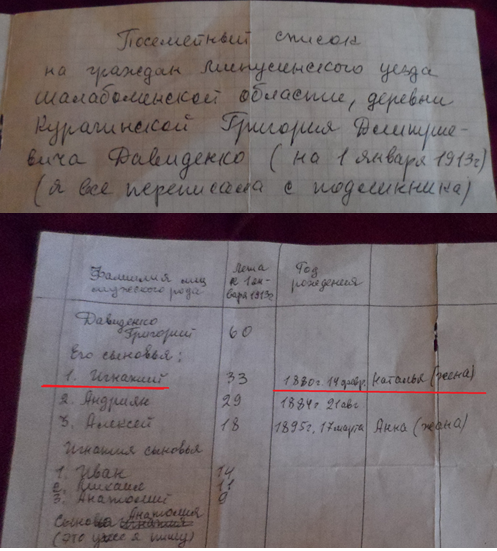 Посемейный список
на граждан Минусинского уезда
Шалаболинской области, деревни
Курагинской Григория Дмитрие-
вича Давиденко (на 1 января 1913г)
(я все переписала с подлинника)
Фамилия лиц мужского рода
Лета к 1 ян-варя 1913г.
Год рождения
Давиденко
Григорий 60
Его сыновья:
1. Игнатий 33 1880г. 14 февр. Наталья (жена)
2. Андриян 29 1884г 21 авг
3. Алексей 18 1895г. 17 марта Анна (жена)
Игнатия сыновья
1. Иван 14
2. Михаил 11
3. Анатолий 9
Анатолия
(это уже я пишу)